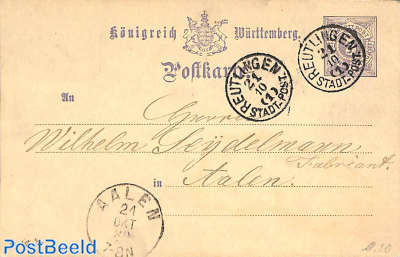 Königreich Württemberg.
Postkarte
REUTLINGEN
21
10
(1)
STADT-POST.
REUTLINGEN
21
10
(1)
STADT-POST.
An
Herrn
Wilhelm Seydelmann
Fabricant.
in Aalen.
AALEN
21
OKT
PostBeeld